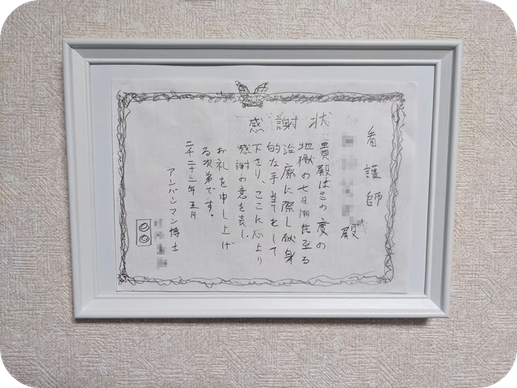 感謝状
看護師
殿
貴殿はこの度の
地獄の七日間至る
治療に際し献身
的な手当てをして
下さり、ここに心より
感謝の意を表し
お礼を申し上げ
る次第です。
二千二十二年五月
アンパンマン博士